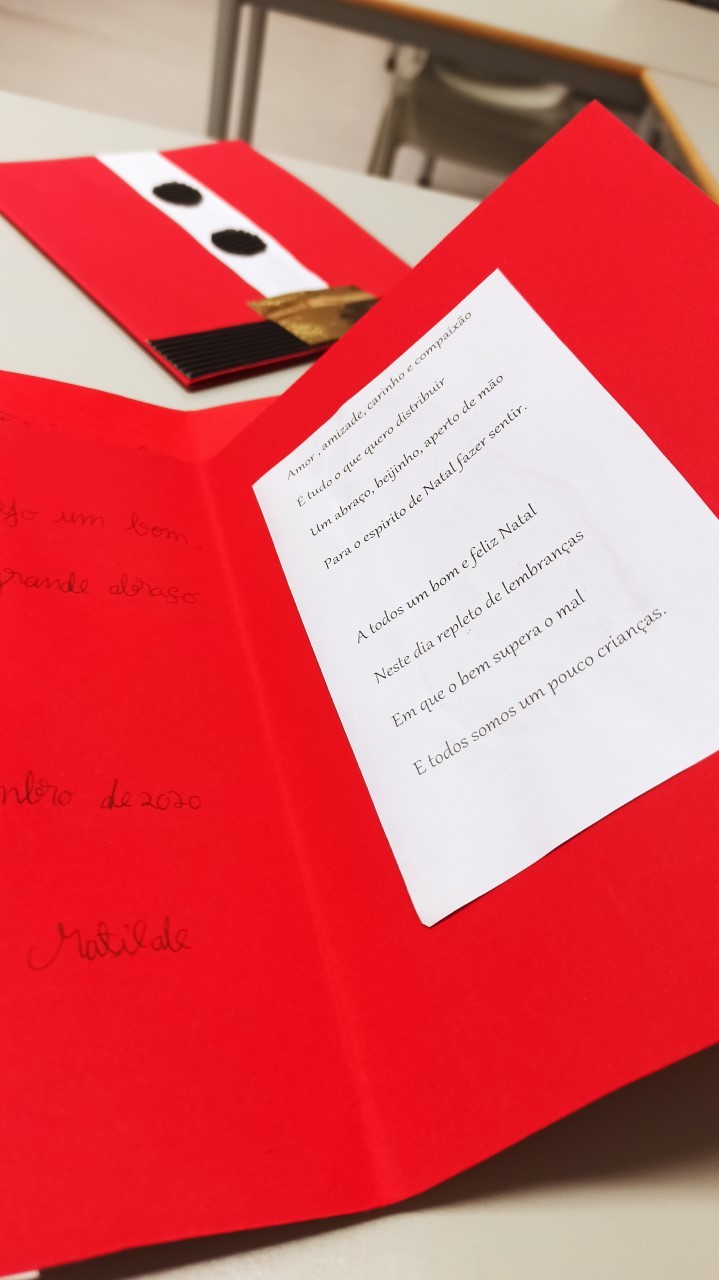 um bom
grande abraço
de 2020
Matilde
Amor, amizade, carinho e compaixão
É tudo o que quero distribuir
Um abraço, beijinho, aperto de mão
Para o espirito de Natal fazer sentir.
A todos um bom e feliz Natal
Neste dia repleto de lembranças
Em que o bem supera o mal
E todos somos um pouco crianças.